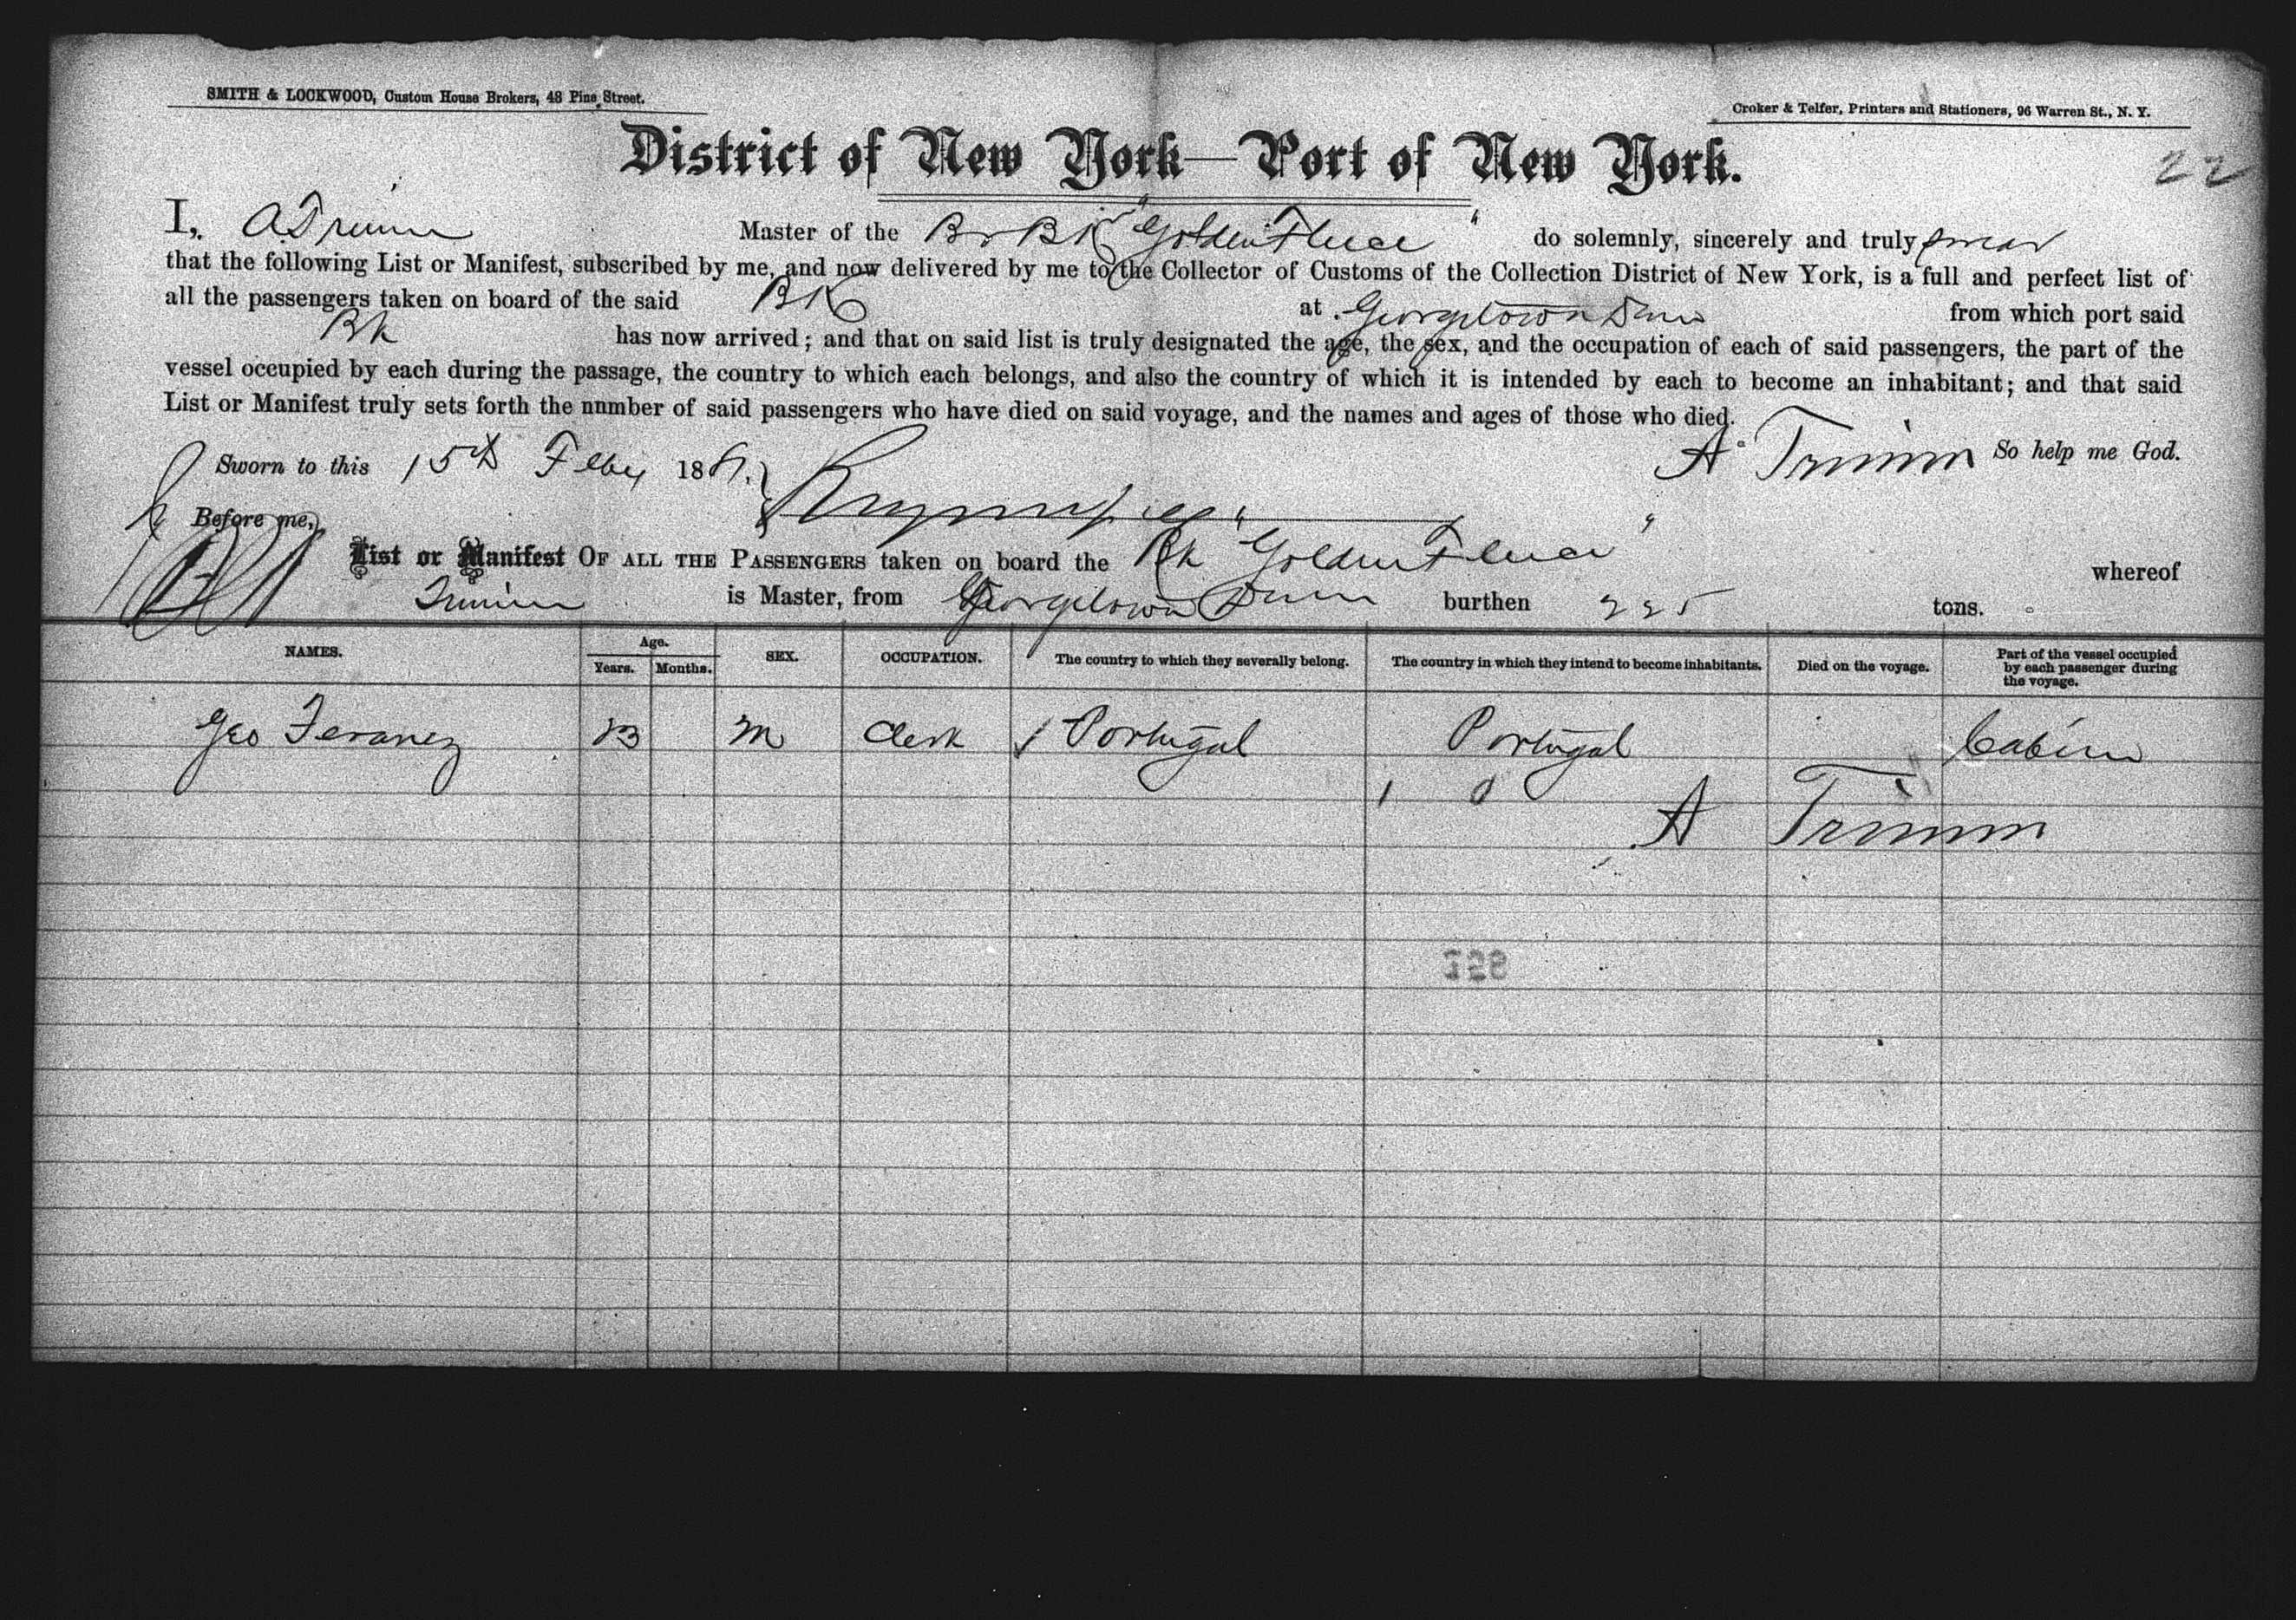 SMITH & LOCKWOOD, Custom House Brokers, 48 Pine Street.
Croker & Telfer, Printers and Stationers, 96 Warren St., N. Y.
District of New York—Port of New York.
22
I, A. Trimm Master of the Br Bk "Golden Fleece" do solemnly, sincerely and truly swear
that the following List or Manifest, subscribed by me, and now delivered by me to the Collector of Customs of the Collection District of New York, is a full and perfect list of
all the passengers taken on board of the said BK at Georgetown Dem from which port said
Bk has now arrived; and that on said list is truly designated the age, the sex, and the occupation of each of said passengers, the part of the
vessel occupied by each during the passage, the country to which each belongs, and also the country of which it is intended by each to become an inhabitant; and that said
List or Manifest truly sets forth the nnmber of said passengers who have died on said voyage, and the names and ages of those who died.
Sworn to this 15th Feby 18 A Trimm So help me God.
Before me,
List or Manifest OF ALL THE PASSENGERS taken on board the Bk "Golden Fleece" whereof
Trimm is Master, from Georgetown Dem burthen 225 tons.
NAMES. Age. Years. Months. SEX. OCCUPATION. The country to which they severally belong. The country in which they intend to become inhabitants. Died on the voyage. Part of the vessel occupied by each passenger during the voyage.
Geo Feranez M Clerk Portugal Portugal Cabin
1 0
A Trimm